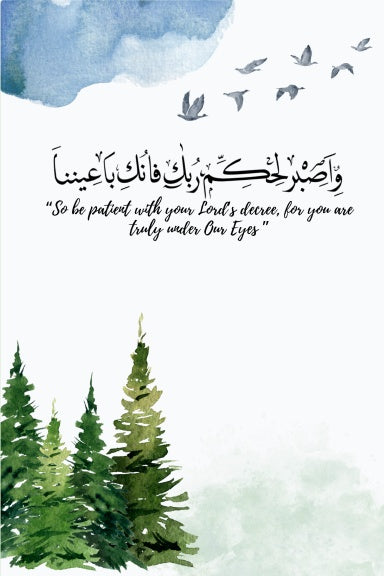 وَاَصْبْر لِحُكِمِّ رَُبكِ فاُنَكِ بَاَعِيننَاَ
“So be patient with your Lord's decree, for you are
truly under Our Eyes”